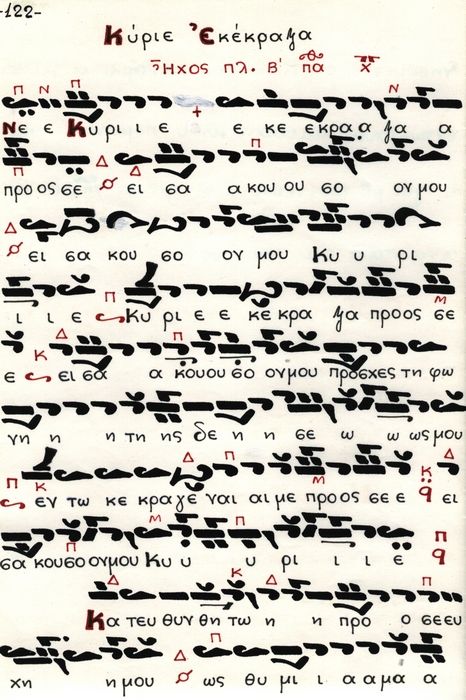 -122-
Κύριε Ἐκέκραξα
Ἦχος πλ. Β' πα
Νε ε Κυ ρι ι ε ε κε εκρα α ξα α
προ ος σε ει σα α κου ου σο ον μου
ει σα κου σο ον μου Κυ υ ρι
ι ι ε Κυ ρι ε ε κε κρα ξα προος σε
ε ει σα α κουου σο ονμου προσχες τη φω
νη η η τη ης δε η η σε ω ω ωςμου
εν τω κε κρα γε ναι αι με προ ος σε ε ει
σα κουσο ονμου Κυ υ υ ρι ι ι ε
Κα τευ θυν θη τω η η προ ο σευ
χη η μου ως θυ μι ι α αμα α